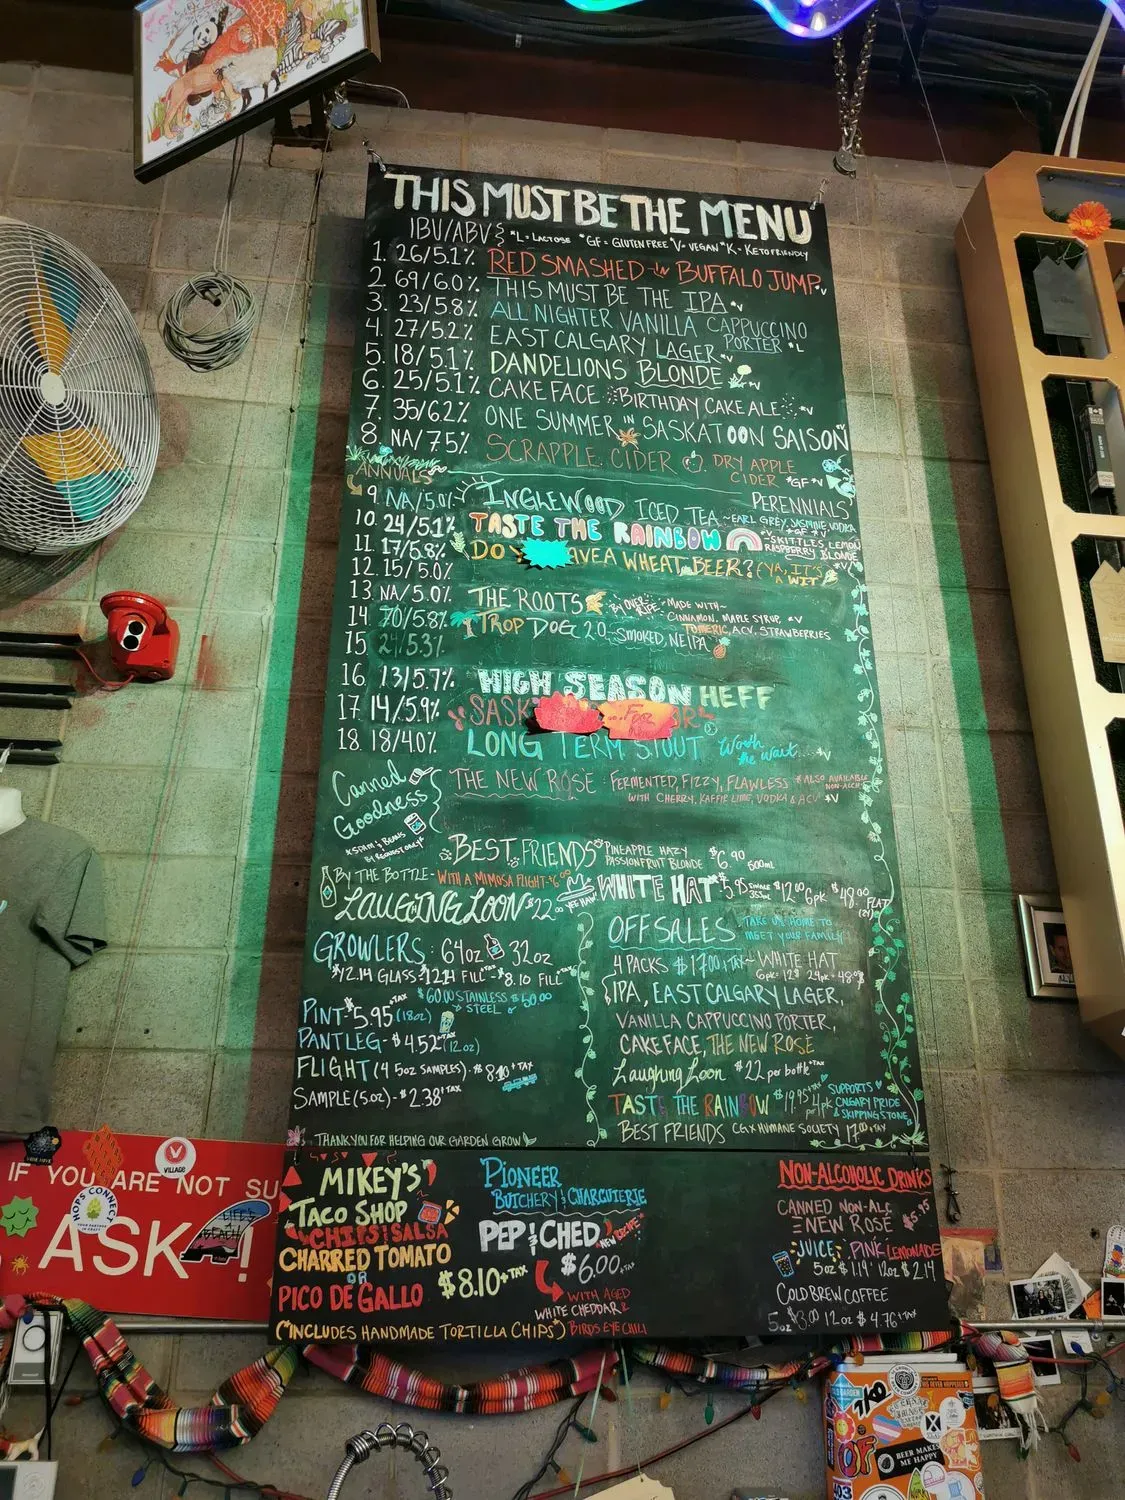 THIS MUST BE THE MENU
IBU/ABV *L = LACTOSE *GF = GLUTEN FREE *V = VEGAN *K = KETO FRIENDLY
1. 26/5.1% RED SMASHED IN BUFFALO JUMP *V
2. 69/6.0% THIS MUST BE THE IPA *V
3. 23/5.8% ALL NIGHTER VANILLA CAPPUCCINO PORTER *L
4. 27/5.2% EAST CALGARY LAGER *V
5. 18/5.1% DANDELIONS BLONDE *V
6. 25/5.1% CAKE FACE BIRTHDAY CAKE ALE *V
7. 35/6.2% ONE SUMMER IN SASKATOON SAISON *V
8. NA/7.5% SCRAPPLE CIDER DRY APPLE CIDER *GF *V
ANNUALS
PERENNIALS
9. NA/5.0% INGLEWOOD ICED TEA ~EARL GREY, JASMINE, VODKA *GF *V
10. 24/5.1% TASTE THE RAINBOW ~SKITTLES, LEMON RASPBERRY BLONDE
11. 17/5.8% DO AVE A WHEAT BEER? (YA, IT'S A WIT) *V
12. 15/5.0%
13. NA/5.0% THE ROOTS BY OVER RIPE ~MADE WITH~ CINNAMON, MAPLE SYRUP, *V TUMERIC, ACV, STRAWBERRIES
14. 70/5.8% TROP DOG 2.0 ~SMOKED, NEIPA
15. 24/5.3%
16. 13/5.7% HIGH SEASON HEFF
17. 14/5.9% SASK
18. 18/4.0% LONG TERM STOUT Worth the wait.... *V
Canned Goodness
*SDAM'S BEANS BY REQUEST ONLY*
THE NEW ROSE FERMENTED, FIZZY, FLAWLESS *ALSO AVAILABLE NON-ALC*
WITH CHERRY, KAFFIR LIME, VODKA & ACV *V
BEST FRIENDS PINEAPPLE HAZY PASSIONFRUIT BLONDE $6.90 500ml
BY THE BOTTLE - WITH A MIMOSA FLIGHT
LAUGHING LOON $22.00
YEE HAW
WHITE HAT $5.95 SINGLE 355ml $12.00 6pk $48.00 FLAT (24)
GROWLERS: 64oz 32oz
$12.14 GLASS $12.14 FILL $8.10 FILL
$60.00 STAINLESS STEEL $50.00
PINT $5.95 +TAX (18oz)
PANTLEG - $4.52 +TAX (12oz)
FLIGHT (4 5oz SAMPLES) - $8.10 +TAX
SAMPLE (5oz) - $2.38 +TAX
THANK YOU FOR HELPING OUR GARDEN GROW
OFFSALES TAKE US HOME TO MEET YOUR FAMILY
4 PACKS $17.00 +TAX ~ WHITE HAT
6pk = 12$ 24pk = 48$
IPA, EAST CALGARY LAGER,
VANILLA CAPPUCCINO PORTER,
CAKE FACE, THE NEW ROSE
Laughing Loon $22 per bottle +TAX
TASTE THE RAINBOW $19.95 +TAX per 4pk SUPPORTS CALGARY PRIDE & SKIPPING STONE
BEST FRIENDS CG X HUMANE SOCIETY 17.00 +TAX
MIKEY'S
TACO SHOP
CHIPS! SALSA
CHARRED TOMATO
OR
PICO DE GALLO $8.10 +TAX
(*INCLUDES HANDMADE TORTILLA CHIPS*)
PIONEER
BUTCHERY & CHARCUTERIE
PEP & CHED NEW RECIPE!
$6.00 +TAX
WITH AGED
WHITE CHEDDAR &
BIRDS EYE CHILI
NON-ALCOHOLIC DRINKS
CANNED NON-ALC
NEW ROSE $5.95
JUICE: PINK LEMONADE
5oz $1.19 12oz $2.14
COLD BREW COFFEE
5oz $3.00 12oz $4.76 +TAX
IF YOU ARE NOT SU
ASK !
VILLAGE
HOPS CONNECT
BEER MAKES ME HAPPY